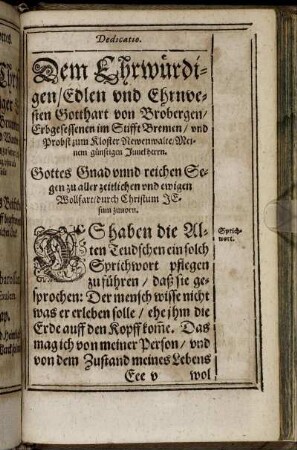 Dedicatio.
Dem Ehrwürdi-
gen/Edlen vnd Ehrnve-
sten Gotthart von Brobergen/
Erbgesessenen im Stifft Bremen/ vnd
Probst zum Kloster Newenwalte/Mei-
nem günstigen Junckherrn.
Gottes Gnad vnnd reichen Se-
gen zu aller zeitlichen vnd ewigen
Wolfart/durch Christum JE-
sum zuuorn.
ES haben die Al-
ten Teudschen ein solch
Sprichwort pflegen
zu führen / daß sie ge-
sprochen: Der mensch wisse nicht
was er erleben solle / ehe ihm die
Erde auff den Kopff kom̃e. Das
mag ich von meiner Person/ vnd
von dem Zustand meines Lebens
Eee v wol
Sprich-
wort.